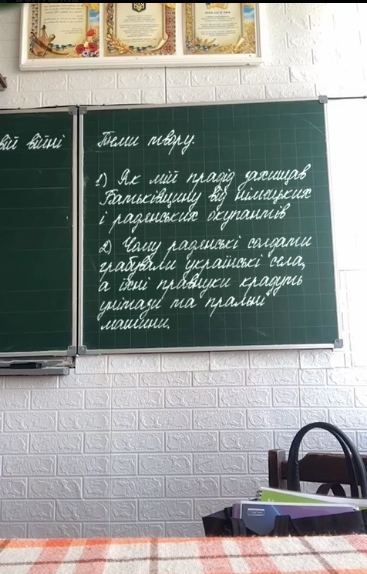 вій війні
Теми твору:
1) Як мій прадід захищав
Батьківщину від німецьких
і радянських окупантів
2) Чому радянські солдати
грабували українські села,
а їхні правнуки крадуть
унітази та пральні
машини.